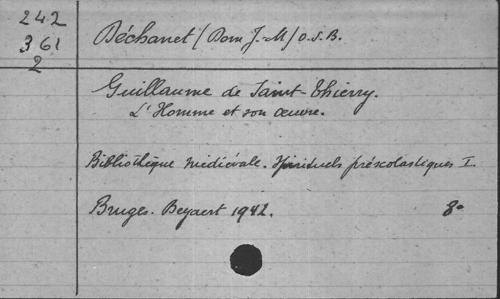 242
361
2
Béchanet / Dom J.-M / O.S.B.
Guillaume de Saint-Thierry.
L'Homme et son œuvre.
Bibliothèque médiévale. Spirituels préscolastiques I.
Bruges. Beyaert 1942. 8°